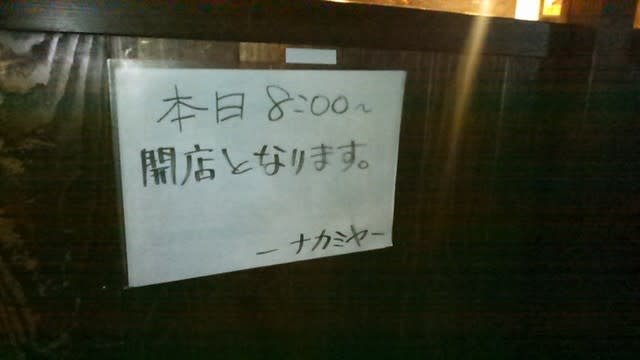 本日 8:00~
開店となります。
ーナカミヤー